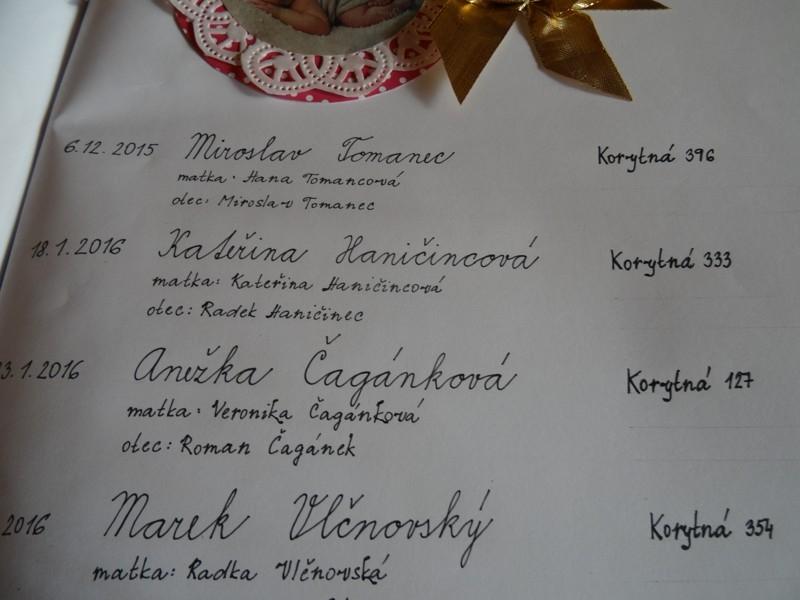 6.12.2015 Miroslav Tomanec Korytná 396
matka: Hana Tomancová
otec: Miroslav Tomanec
18.1.2016 Kateřina Haničincová Korytná 333
matka: Kateřina Haničincová
otec: Radek Haničinec
3.1.2016 Anežka Čagánková Korytná 127
matka: Veronika Čagánková
otec: Roman Čagánek
2016 Marek Vlčnovský Korytná 354
matka: Radka Vlčnovská